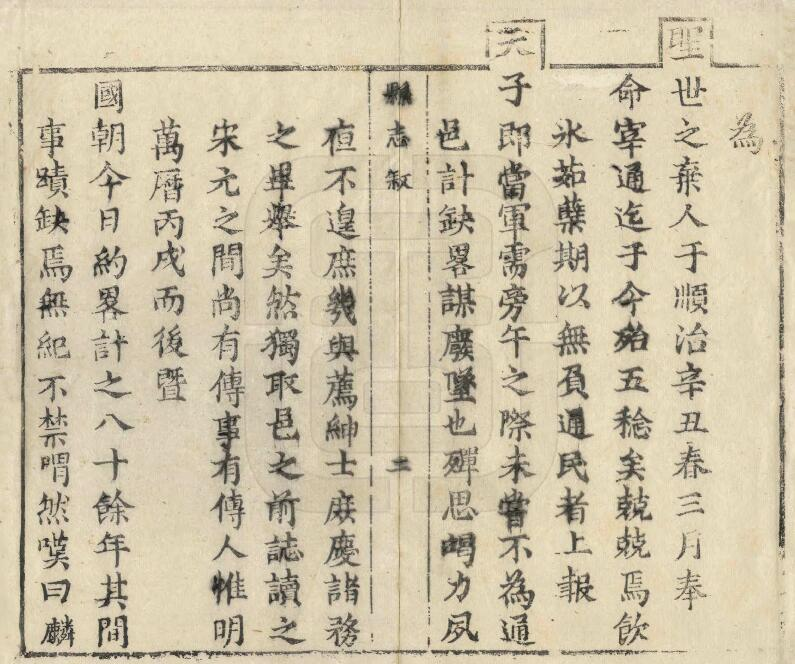 為
聖世之棄人于順治辛丑春三月奉
命宰通迄于今殆五稔矣兢兢焉飲
氷茹蘗期以無負通民者上報
天子即當軍需旁午之際未嘗不為通
邑計缺畧謀廢墜也殫思竭力夙
縣志敘 二
夜不遑庶幾與薦紳士庶慶諸務
之畢舉矣然獨取邑之前誌讀之
宋元之間尚有傳事有傳人惟明
萬曆丙戌而後暨
國朝今日約畧計之八十餘年其間
事蹟缺焉無紀不禁喟然嘆曰麟